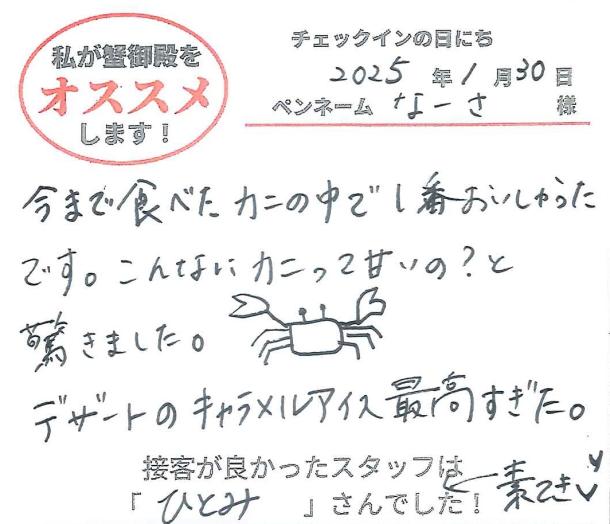 私が蟹御殿を
オススメ
します！
チェックインの日にち
2025年1月30日
ペンネーム なーさ 様
今まで食べたカニの中で1番おいしかった
です。こんなにカニって甘いの？と
驚きました。
デザートのキャラメルアイス最高すぎた。
接客が良かったスタッフは
「ひとみ」さんでした！←素てき